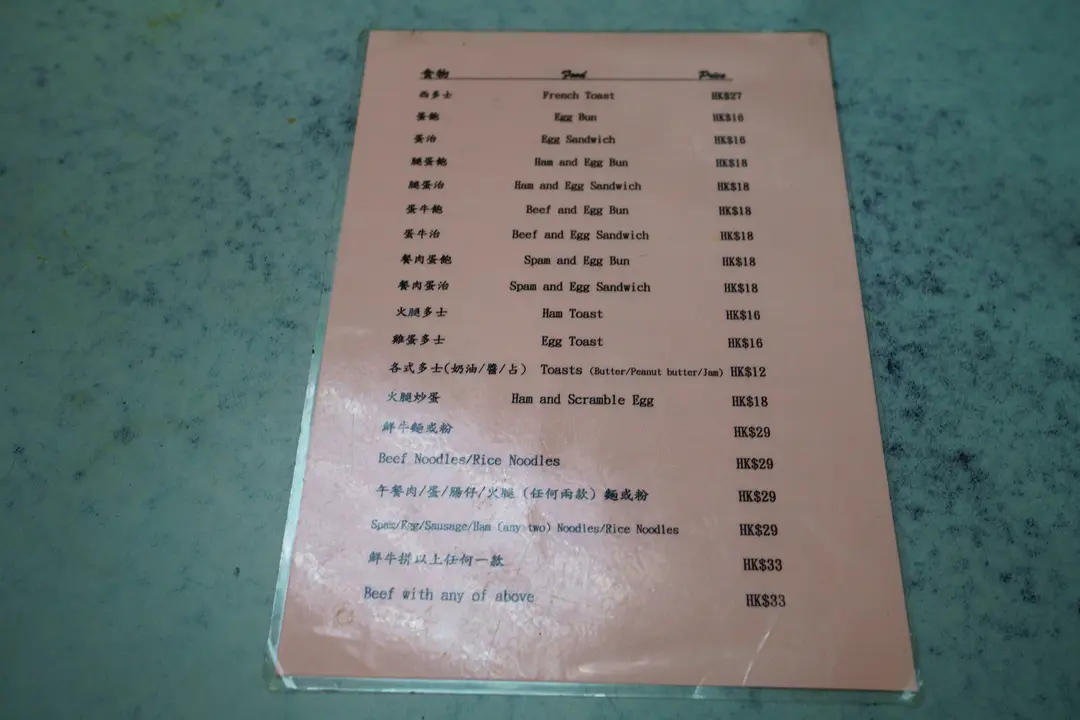 食物 Food Price
西多士 French Toast HK$27
蛋飽 Egg Bun HK$16
蛋治 Egg Sandwich HK$16
腿蛋飽 Ham and Egg Bun HK$18
腿蛋治 Ham and Egg Sandwich HK$18
蛋牛飽 Beef and Egg Bun HK$18
蛋牛治 Beef and Egg Sandwich HK$18
餐肉蛋飽 Spam and Egg Bun HK$18
餐肉蛋治 Spam and Egg Sandwich HK$18
火腿多士 Ham Toast HK$16
雞蛋多士 Egg Toast HK$16
各式多士(奶油/醬/占) Toasts (Butter/Peanut butter/Jam) HK$12
火腿炒蛋 Ham and Scramble Egg HK$18
鮮牛麵或粉 HK$29
Beef Noodles/Rice Noodles HK$29
午餐肉/蛋/腸仔/火腿 (任何兩款) 麵或粉 HK$29
Spam/Egg/Sausage/Ham (any two) Noodles/Rice Noodles HK$29
鮮牛拼以上任何一款 HK$33
Beef with any of above HK$33